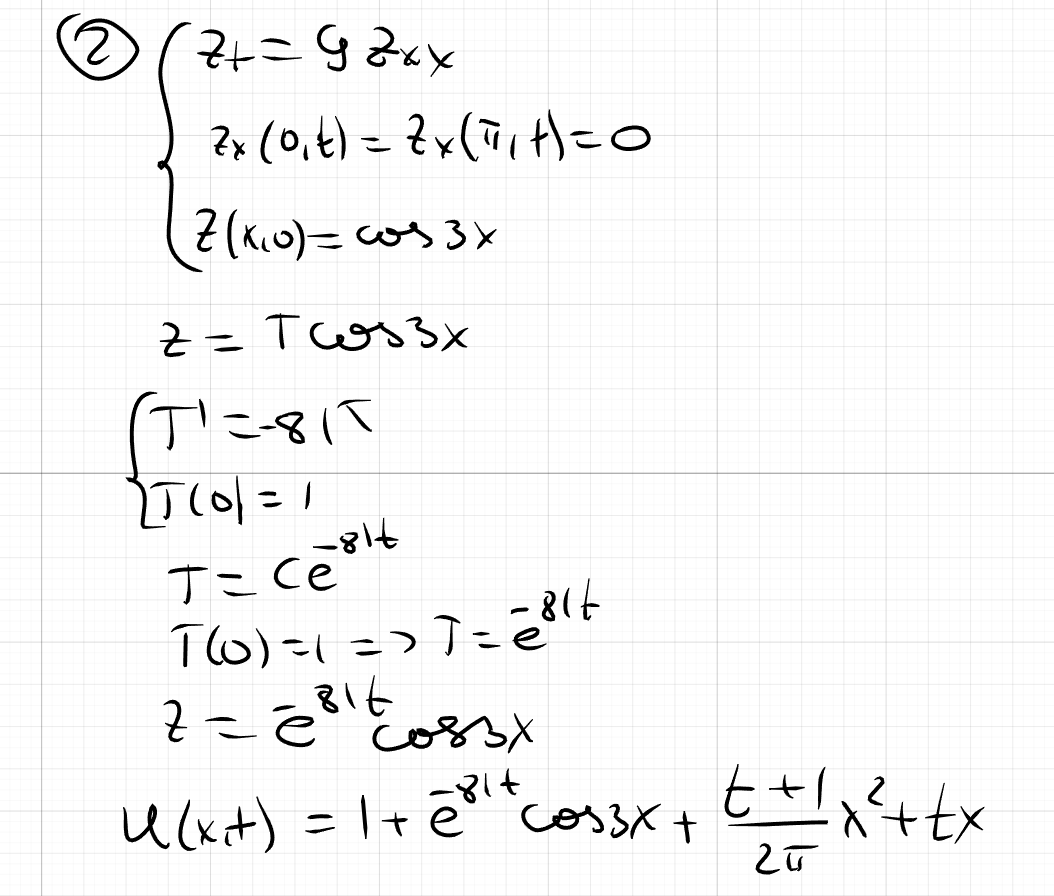 ② { z_t = 9 z_xx
z_x(0,t) = z_x(π,t) = 0
z(x,0) = cos 3x
z = T cos 3x
{ T' = -81T
T(0) = 1
T = Ce^{-81t}
T(0) = 1 => T = e^{-81t}
z = e^{-81t} cos 3x
u(x,t) = 1 + e^{-81t} cos 3x + \frac{t+1}{2π} x² + tx